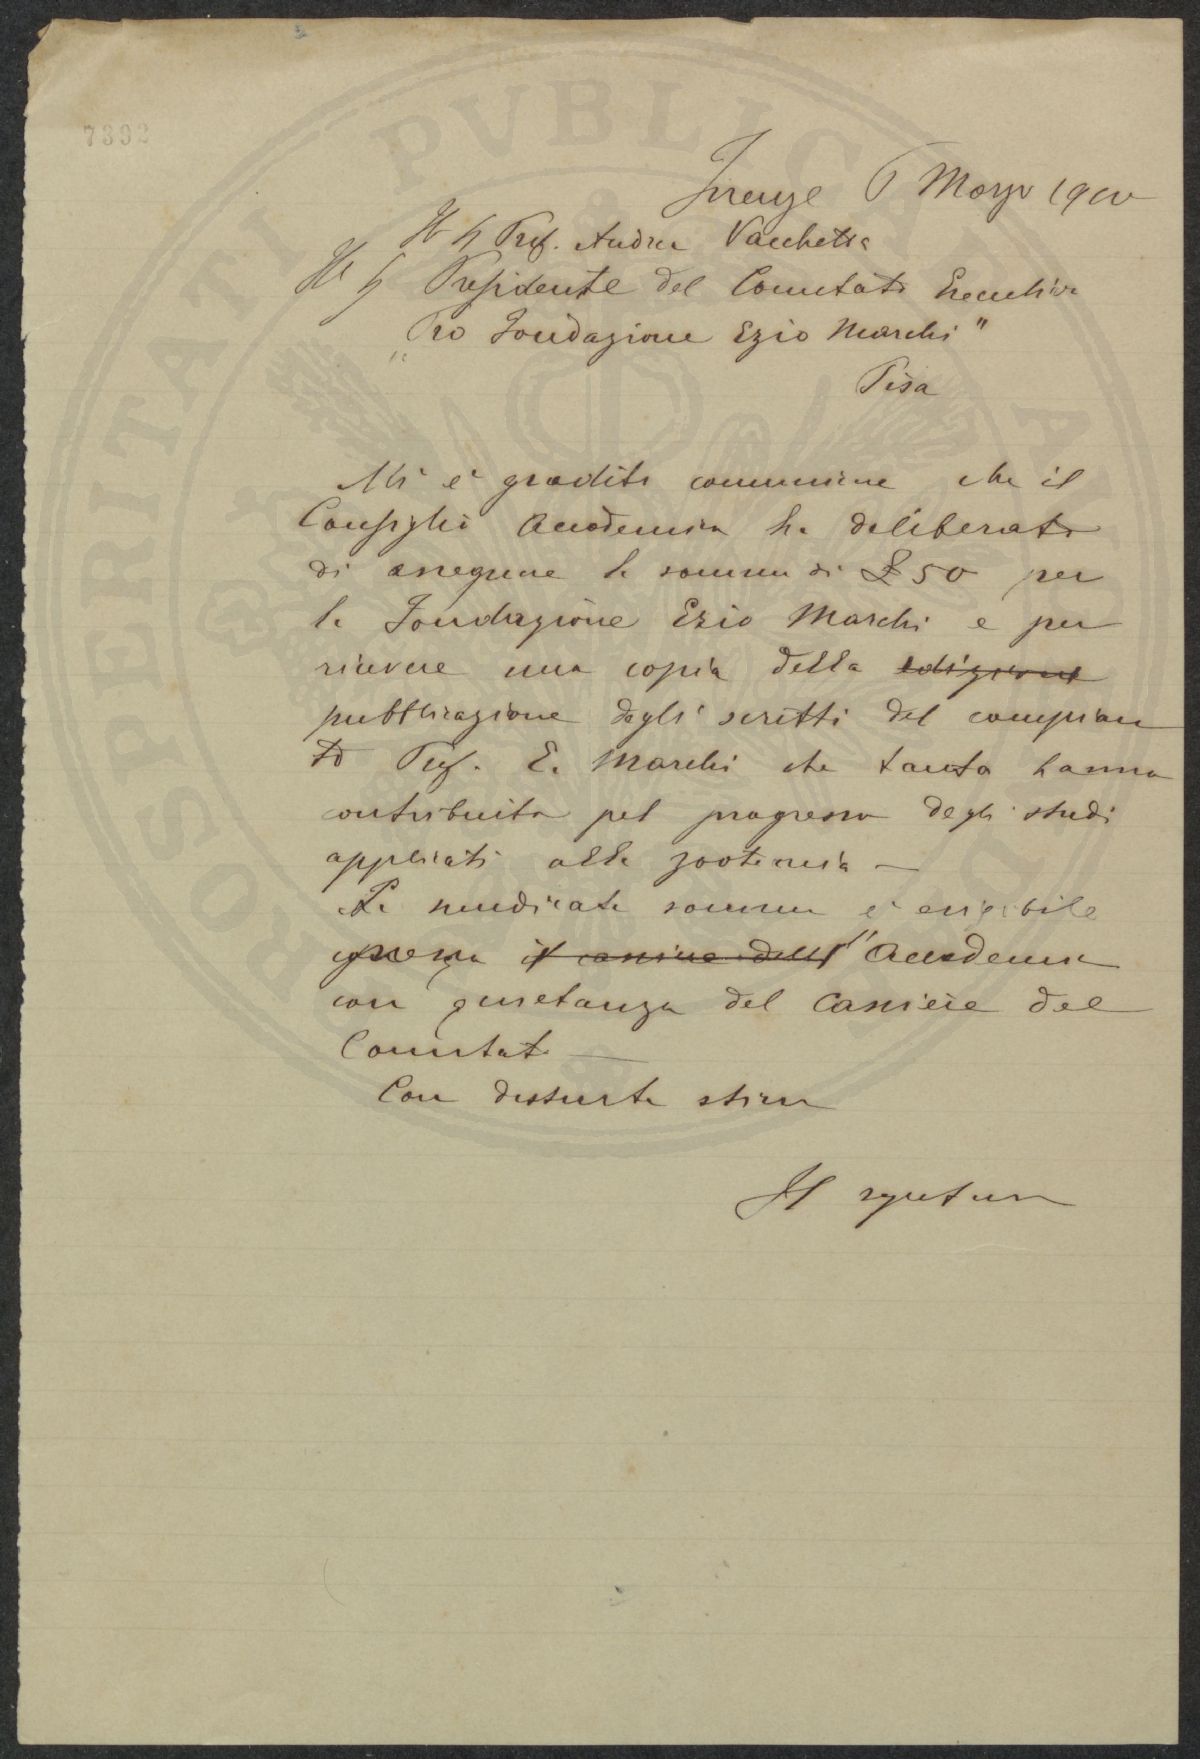 7392
PROSPERITATI PVBLICAE AVGENDAE
Firenze 6 Marzo 1910
Ill Sig Prof. Andrea Vacchetta
Ill Sig Presidente del Comitato Esecutivo
"Pro Fondazione Ezio Marchi"
Pisa
Mi è gradito comunicare che il
Consiglio Accademico ha deliberato
di assegnare la somma di £ 50 per
la Fondazione Ezio Marchi e per
ricevere una copia della edizione
pubblicazione degli scritti del compian
to Prof. E. Marchi che tanto hanno
contribuito pel progresso degli studi
applicati alla zootecnia —
La suindicata somma è esigibile
presso il cassiere dell l'Accademia
con quietanza del Cassiere del
Comitato —
Con distinta stima
Il segretario